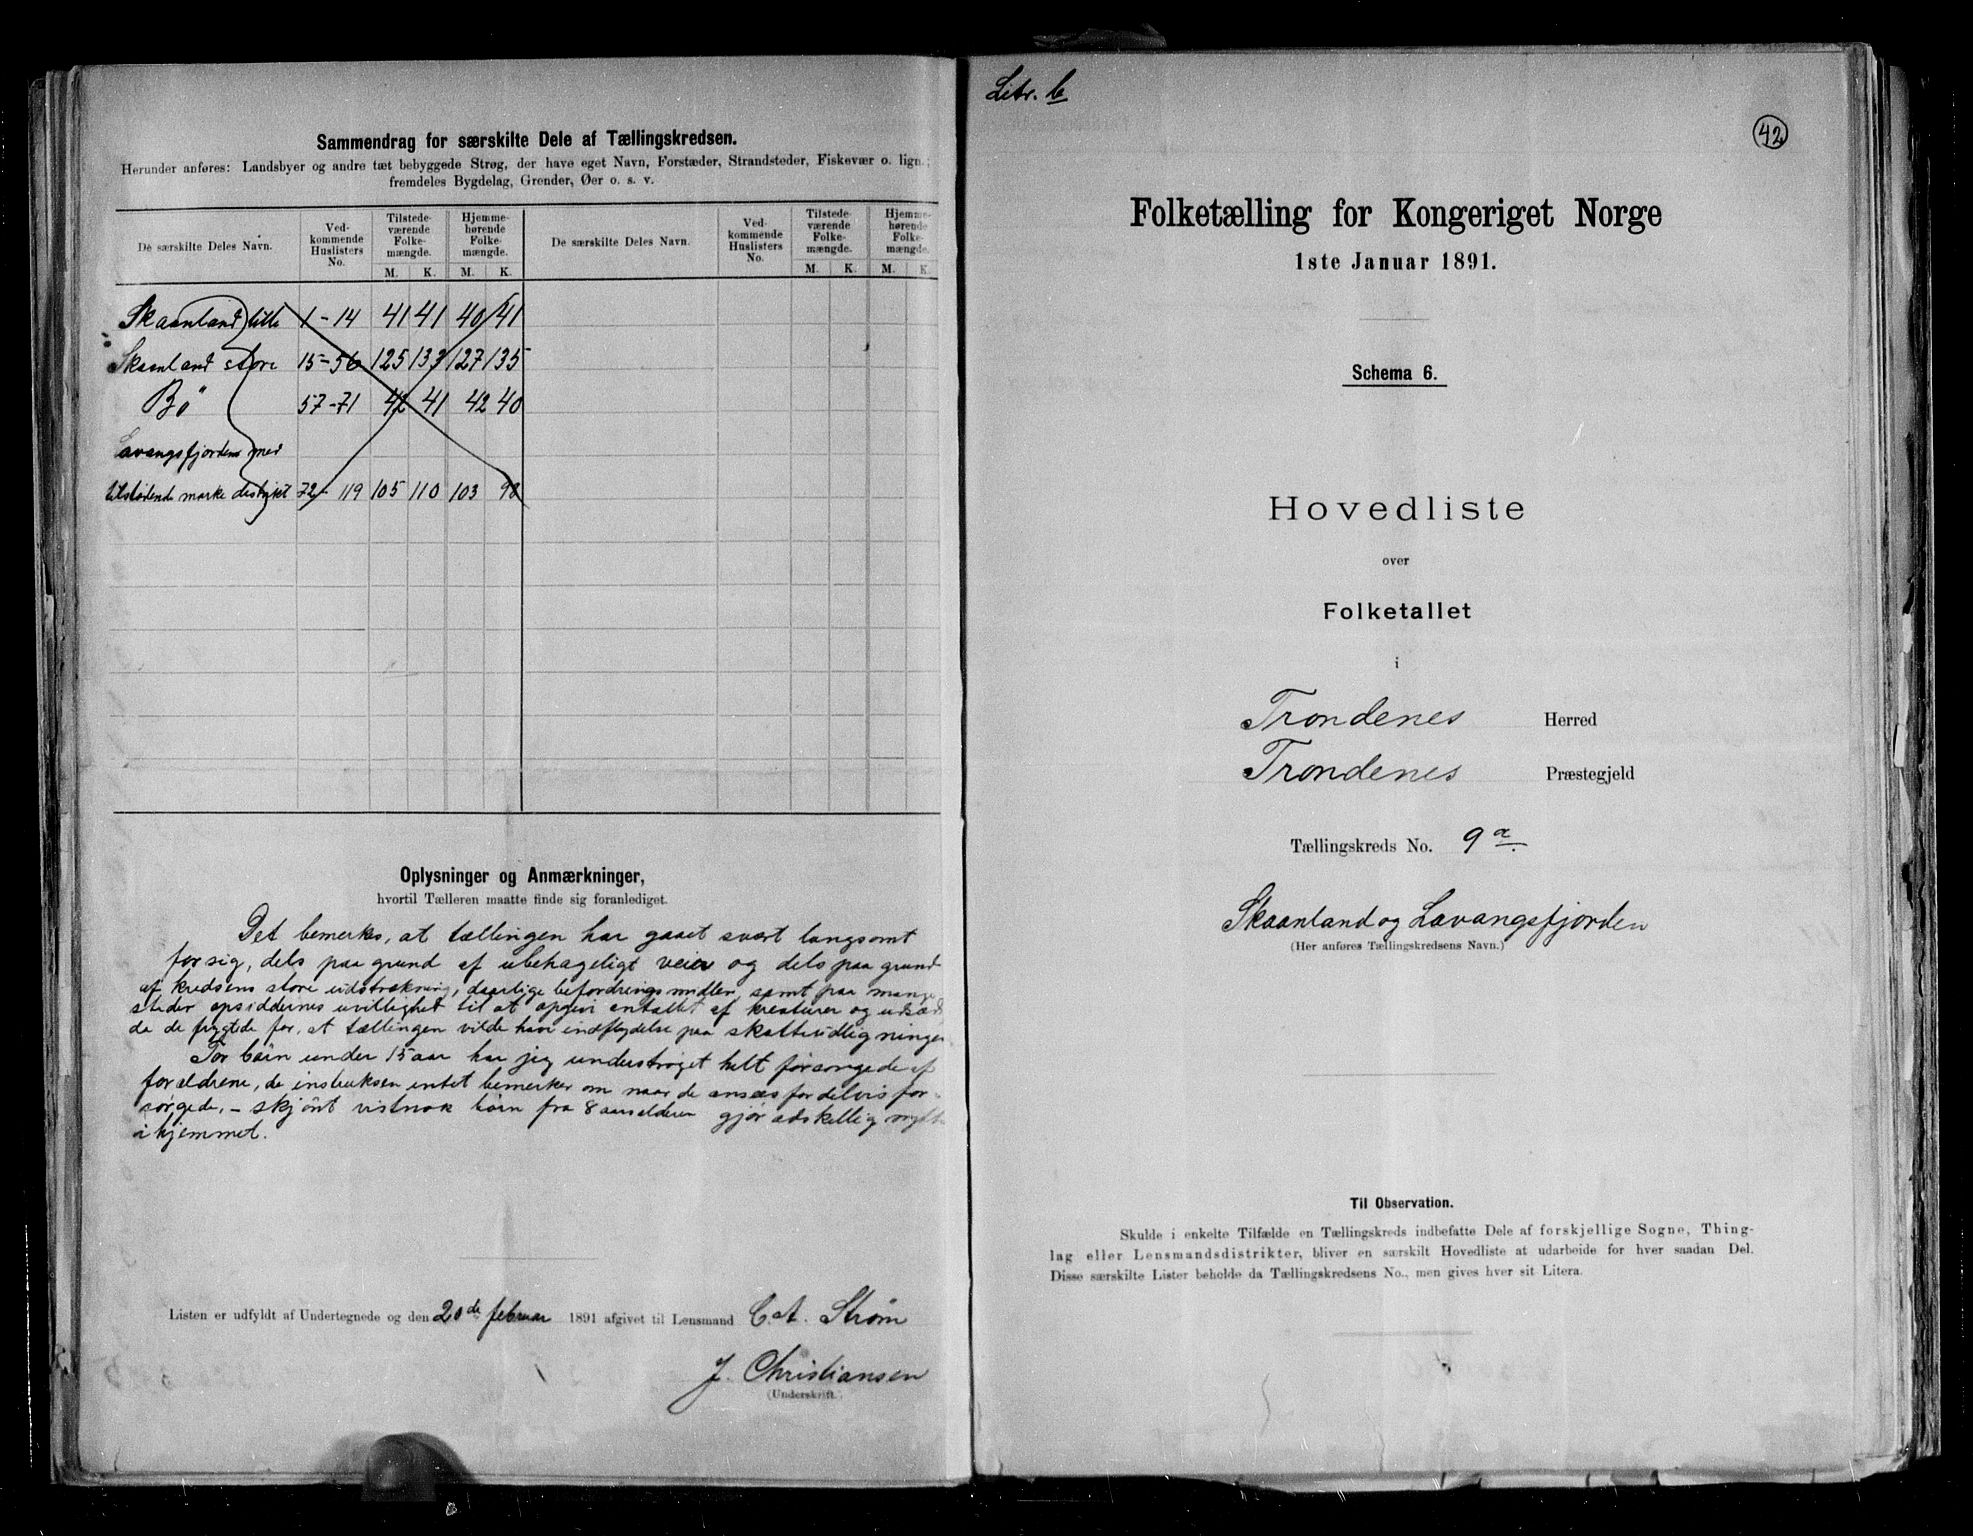 Sammendrag for særskilte Dele af Tællingskredsen.
Herunder anføres: Landsbyer og andre tæt bebyggede Strøg, der have eget Navn, Forstæder, Strandsteder, Fiskevær o. lign.;
fremdeles Bygdelag, Grender, Øer o. s. v.
De særskilte Deles Navn. Ved-kommende Huslisters No. Tilstede-værende Folke-mængde. Hjemme-hørende Folke-mængde. De særskilte Deles Navn. Ved-kommende Huslisters No. Tilstede-værende Folke-mængde. Hjemme-hørende Folke-mængde.
M. K. M. K. M. K. M. K.
Skaanland lille 1-14 41 41 40 41
Skaanland store 15-56 125 133 127 135
Bö 57-71 42 41 42 40
Lavangsfjorden med
tilstødende marke distrikt 72- 119 105 110 103 98
Oplysninger og Anmærkninger,
hvortil Tælleren maatte finde sig foranlediget.
Det bemerkes, at tællingen har gaaet svært langsomt
for sig, dels paa grund af ubehageligt veir og dels paa grund
af kredsens store udstrækning, daarlige befordringsmidler, samt paa mange
steder opsiddernes uvillighet til at opgive antallet af kreaturer og udsæd,
da de frygtede for, at tællingen vilde have indflydelse paa skatteudligningen.
For börn under 15 aar har jeg understrøget helt forsørgede af
forældrene, da instruksen intet bemerker om naar de ansees for delvis for-
sørgede, - skjönt vistnok börn fra 8 aarsalderen gjør adskellig nytte
i hjemmet.
Listen er udfyldt af Undertegnede og den 20de februar 1891 afgivet til Lensmand C. A. Strøm
J. Christiansen
(Underskrift.)
Litr. b
42
Folketælling for Kongeriget Norge
1ste Januar 1891.
Schema 6.
Hovedliste
over
Folketallet
i
Trondenes Herred
Trondenes Præstegjeld
Tællingskreds No. 9 a.
Skaanland og Lavangsfjorden
(Her anføres Tællingskredsens Navn.)
Til Observation.
Skulde i enkelte Tilfælde en Tællingskreds indbefatte Dele af forskjellige Sogne, Thing-
lag eller Lensmandsdistrikter, bliver en særskilt Hovedliste at udarbeide for hver saadan Del.
Disse særskilte Lister beholde da Tællingskredsens No., men gives hver sit Litera.